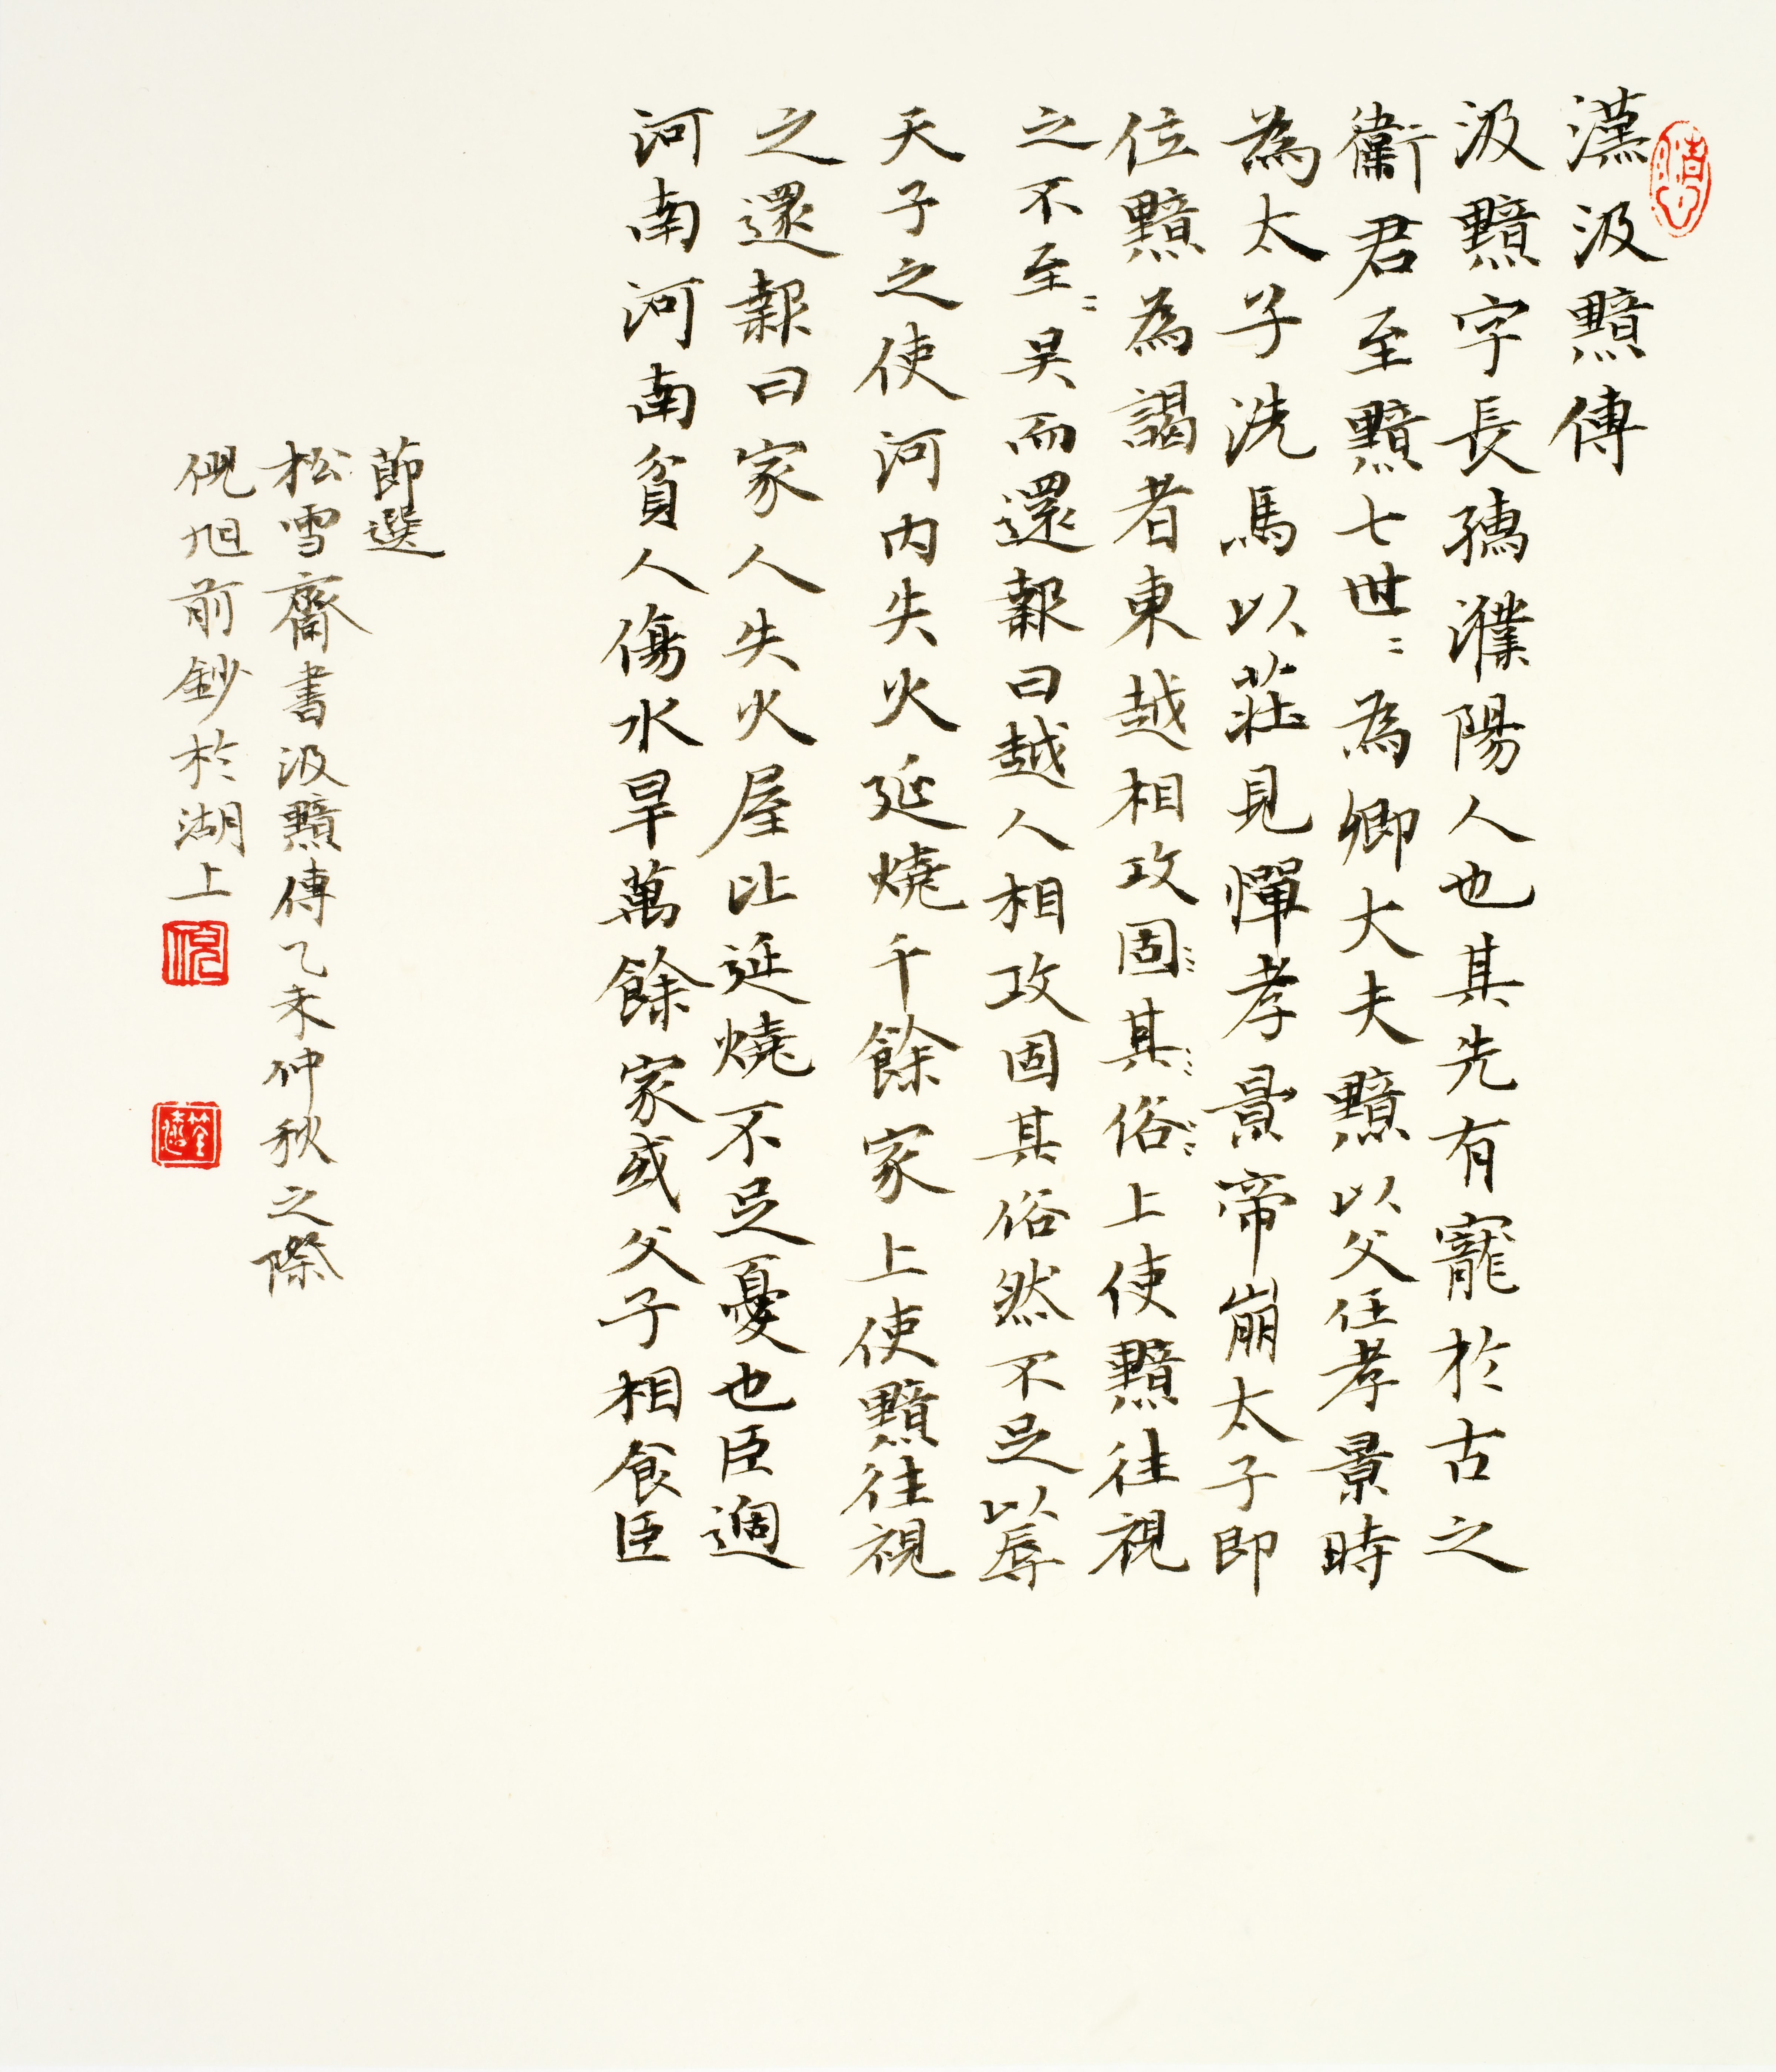 漢汲黯傳
汲黯字長孺濮陽人也其先有寵於古之
衛君至黯七世〻為卿大夫黯以父任孝景時
為太子洗馬以莊見憚孝景帝崩太子即
位黯為謁者東越相攻固其俗上使黯往視
之不至〻吴而還報曰越人相攻固其俗然不足以辱
天子之使河内失火延燒千餘家上使黯往視
之還報曰家人失火屋比延燒不足憂也臣過
河南河南貧人傷水旱萬餘家或父子相食臣
節選
松雪齋書汲黯傳乙未仲秋之際
倪旭前鈔於湖上
倪